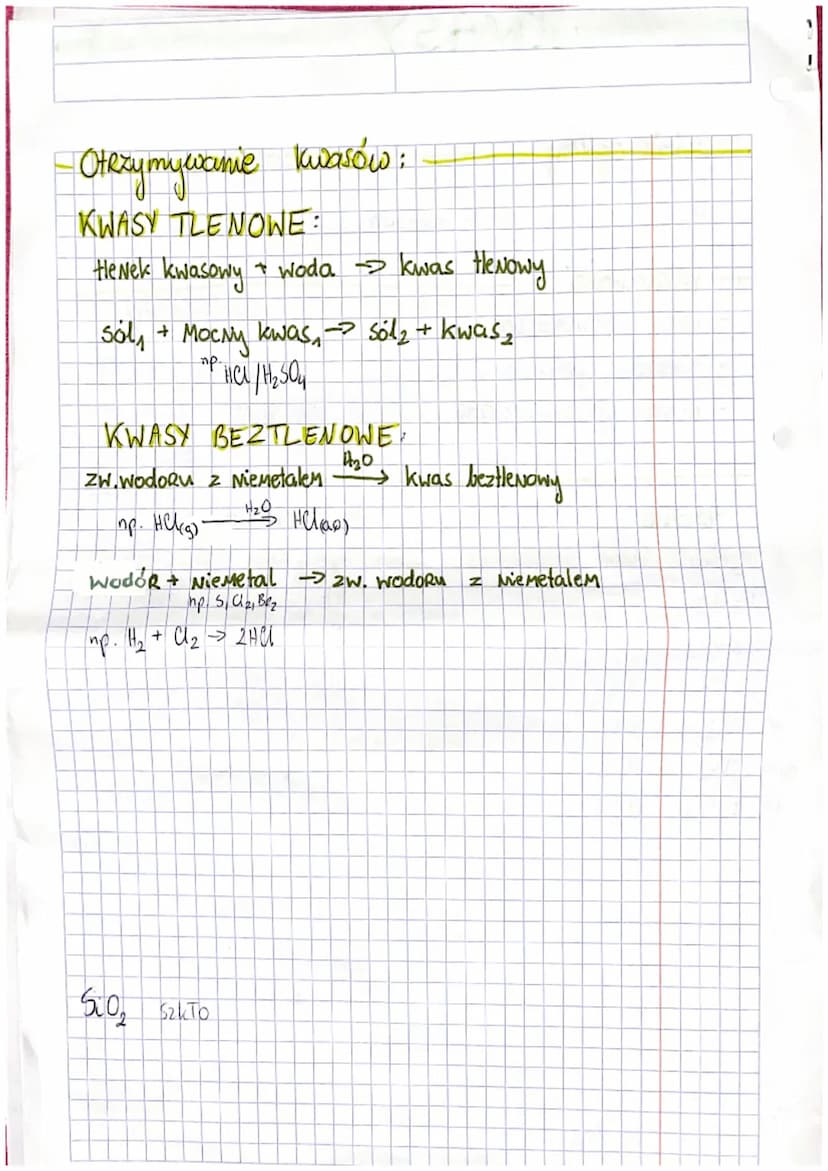 - Otrzymywanie kwasów:
KWASY TLENOWE:
tlenek kwasowy + woda → kwas tlenowy
sól₁ + Mocny kwas₁ → sól₂ + kwas₂
np. HCl/H₂SO₄
KWASY BEZTLENOWE:
zw. wodoru z niemetalem —H₂O→ kwas beztlenowy
np. HCl(g) —H₂O→ HCl(aq)
wodór + niemetal → zw. wodoru z niemetalem
np. S, Cl₂, Br₂
np. H₂ + Cl₂ → 2HCl
SiO₂ szkło